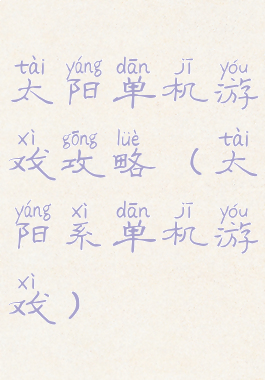 tài yáng dān jī yóu
太阳单机游
xì gōng lüè tài
戏攻略（太
yáng xì dān jī yóu
阳系单机游
xì
戏）